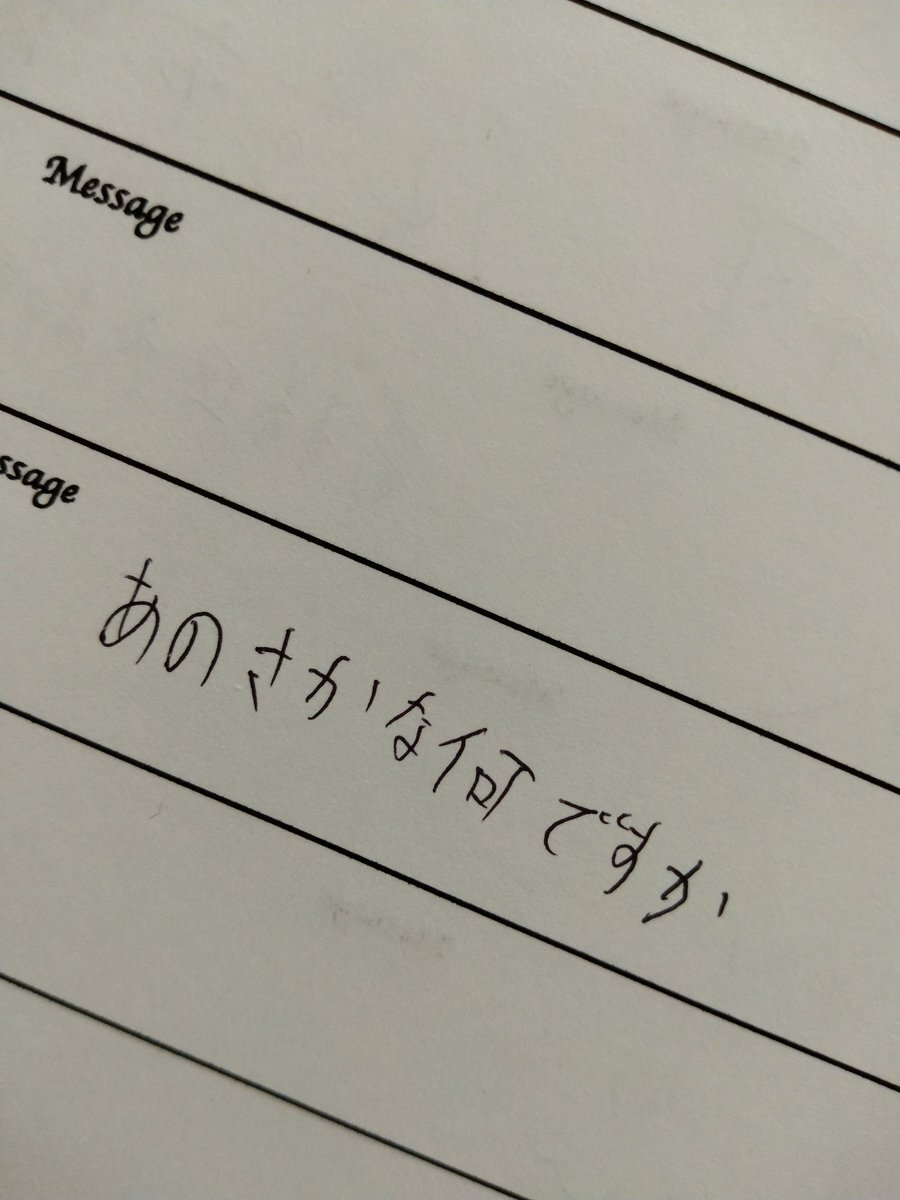 Message
ssage
あのさかな何ですか